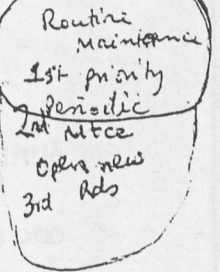 Routine
Maintenance
1st priority
Periodic
2nd Mtce
Open new
3rd Rds